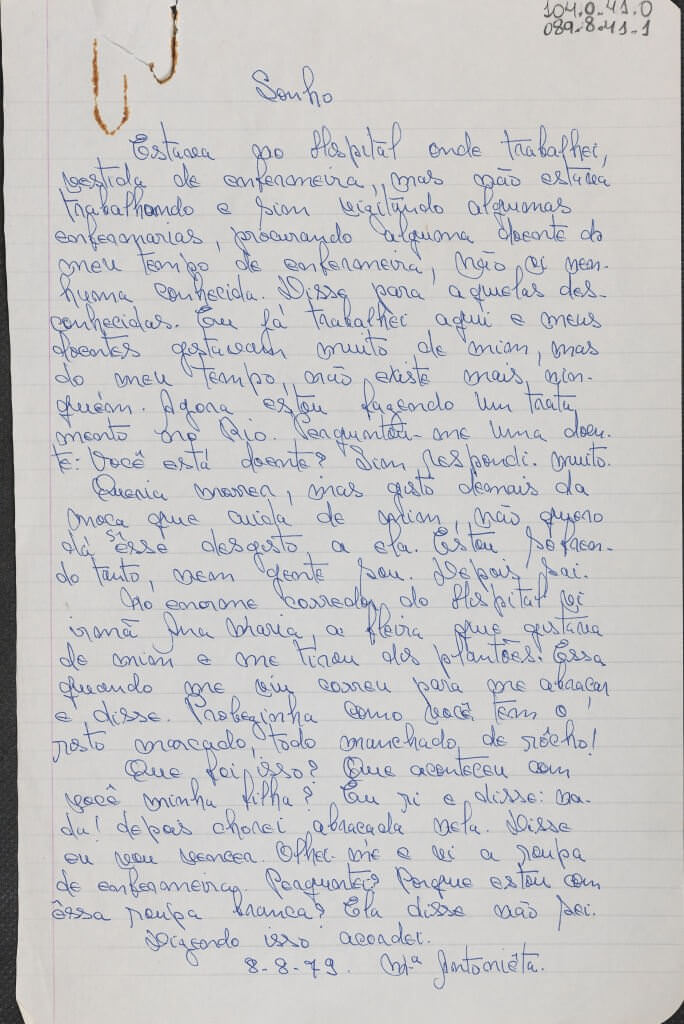 104.0.41.0
089.8.41-1
Sonho
Estava no Hospital onde trabalhei,
vestida de enfermeira, mas não estava
trabalhando e sim vigitando algumas
enfermarias, procurando alguma doente do
meu tempo de enfermeira, não vi nen-
huma conhecida. Disse para aquelas des-
conhecidas. Eu já trabalhei aqui e meus
doentes gostavam muito de mim, mas
do meu tempo, não existe mais, nin-
guém. Agora estou fazendo um trata
mento no Rio. Perguntou-me uma doen-
te: Você está doente? Sim respondi. Muito.
Queria morrer, mas gosto demais da
moça que cuida de mim, não quero
dá esse desgosto a ela. Estou sofren-
do tanto, nem gente sou. Depois, sai.
No enorme corredor do Hospital vi
irmã Ana Maria, a freira que gostava
de mim e me tirou dos plantões. Essa
quando me viu correu para me abraçar
e disse. Probezinha como você tem o
rosto marcado, todo manchado de rôcho!
Que foi isso? Que aconteceu com
você minha filha? Eu ri e disse: na-
da! depois chorei abraçada nela. Disse
eu vou vencer. Olhei-me e vi a roupa
de enfermeira. Perguntei? Porque estou com
êssa roupa branca? Ela disse não sei.
Dizendo isso acordei.
8-8-79. Mª Antoniêta.